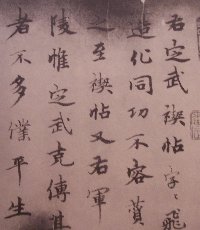 右定武禊帖字〻飛
造化同功不容贊
之至禊帖又右軍
陵惟定武克傳其
者不多僕平生